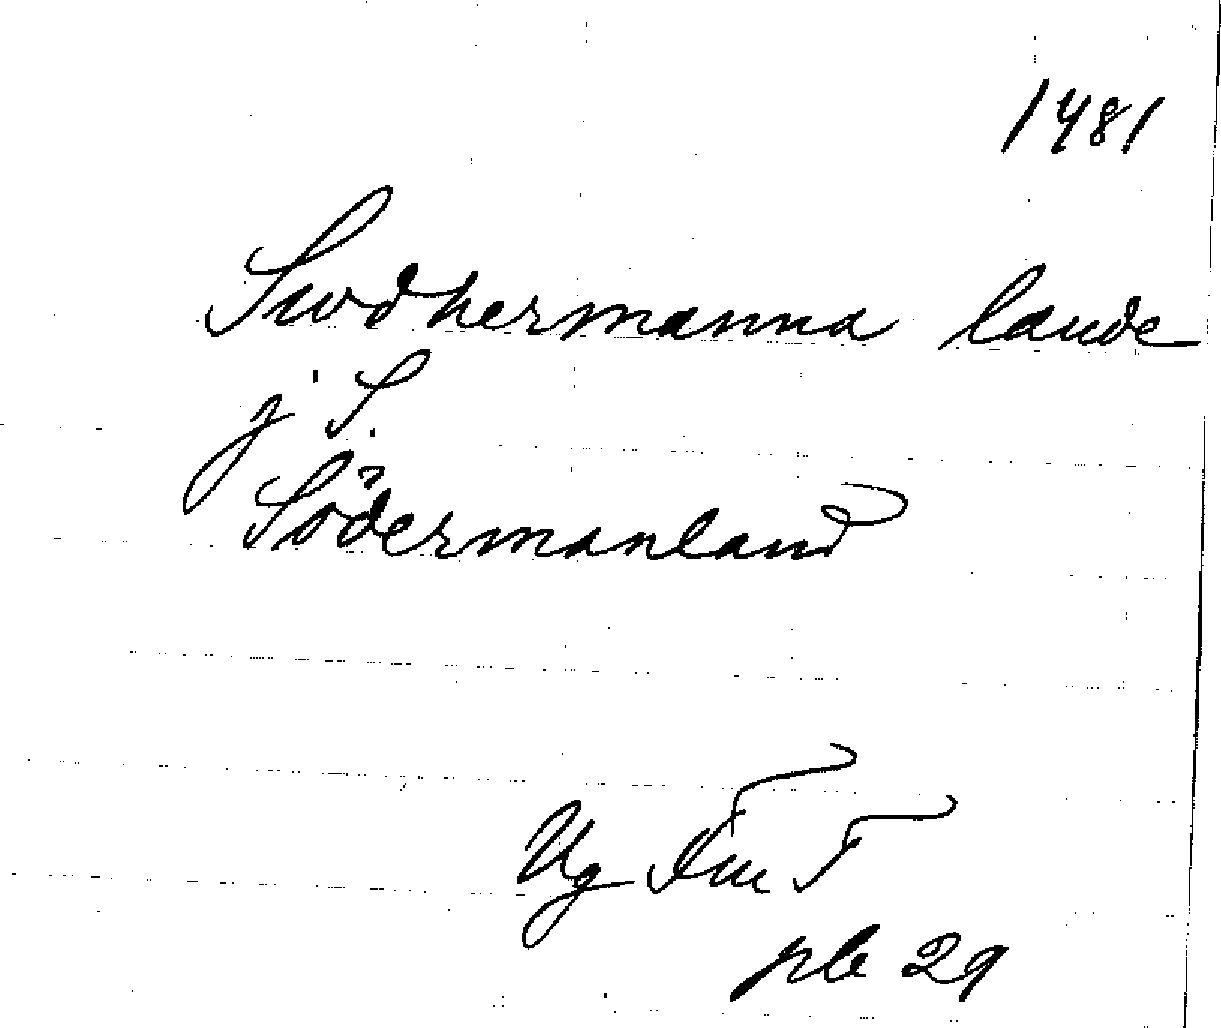 1481
Swdhermanna lande
j S.
Södermanland
Ug Fru T
ple 29